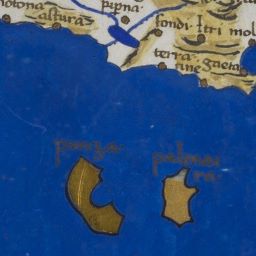 pipna
astura
fondi
itri
mol
terra
cine
gaeta
ponza
palmai
ra